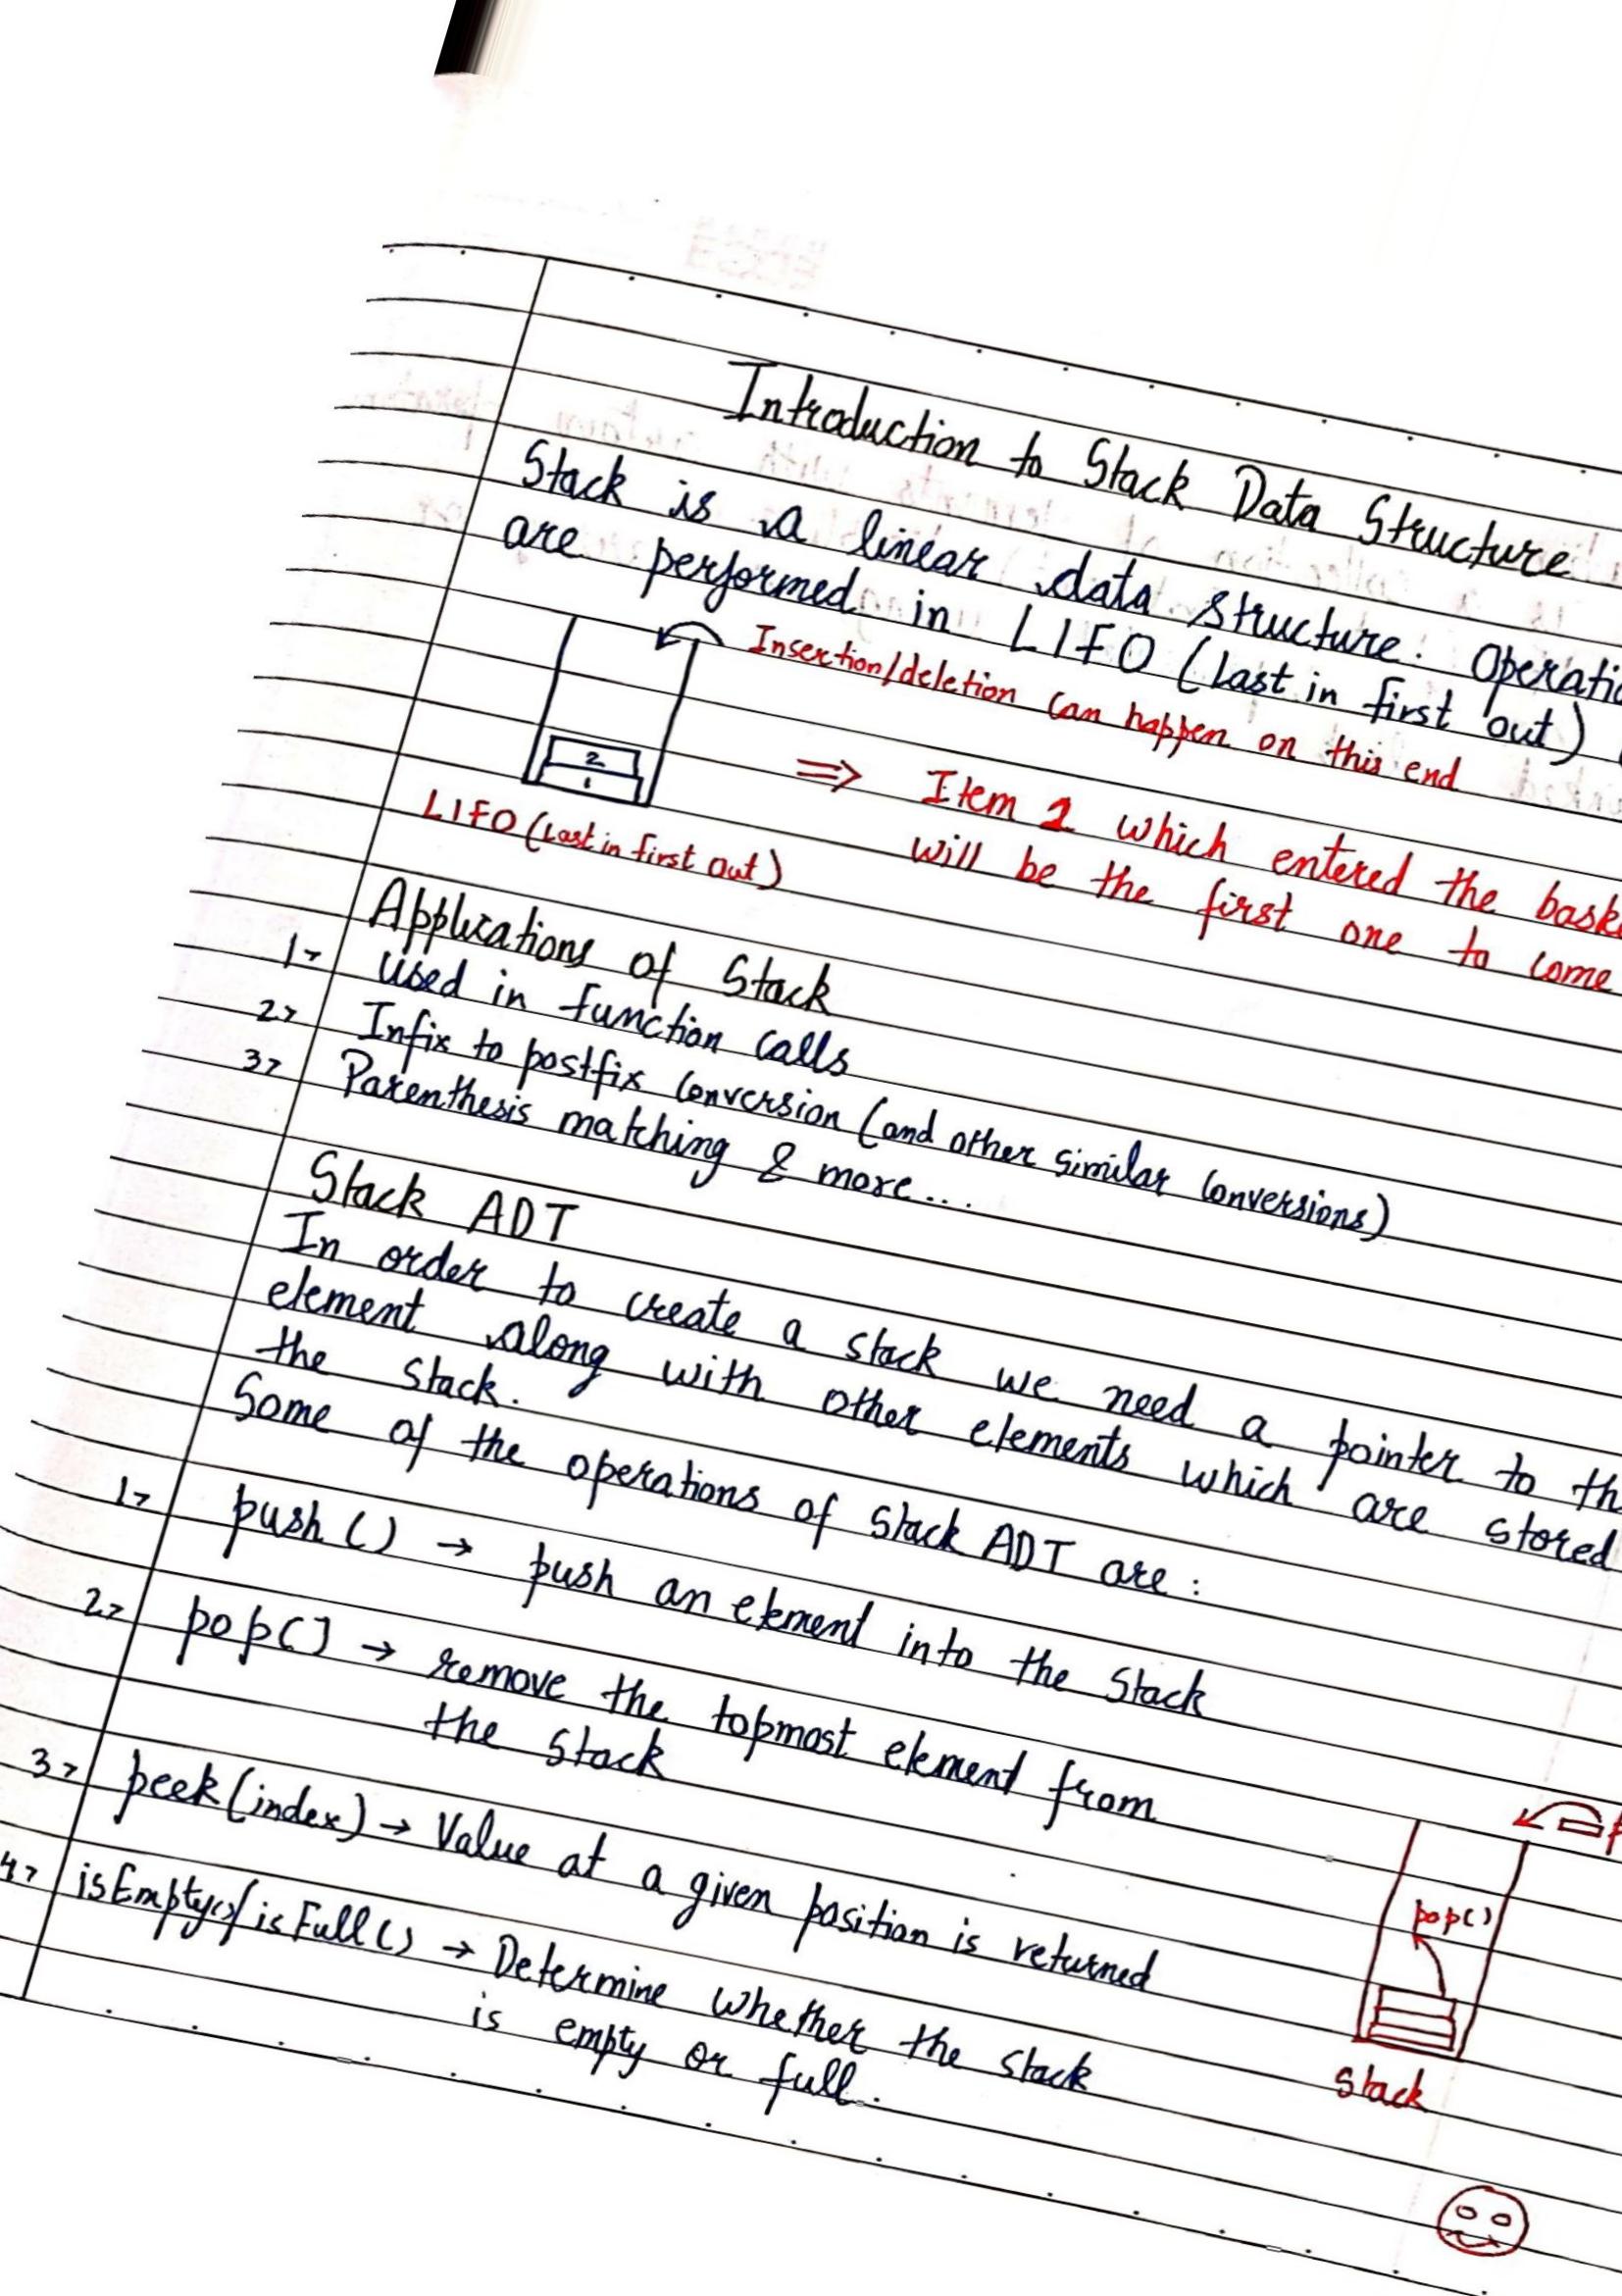 Introduction to Stack Data Structure
Stack is a linear data structure. Operatio
are performed in LIFO (Last in first out)
Insertion/deletion can happen on this end
2
1
LIFO (Last in first out)
⇒ Item 2 which entered the bask
will be the first one to come
Applications of Stack
1> Used in function calls
2> Infix to postfix conversion (and other similar conversions)
3> Parenthesis matching & more...
Stack ADT
In order to create a stack we need a pointer to th
element along with other elements which are stored
the stack.
Some of the operations of Stack ADT are:
1> push() → push an element into the stack
2> pop() → remove the topmost element from
the stack
3> peek(index) → Value at a given position is returned
4> isEmpty()/isFull() → Determine whether the stack
is empty or full.
pop()
Stack